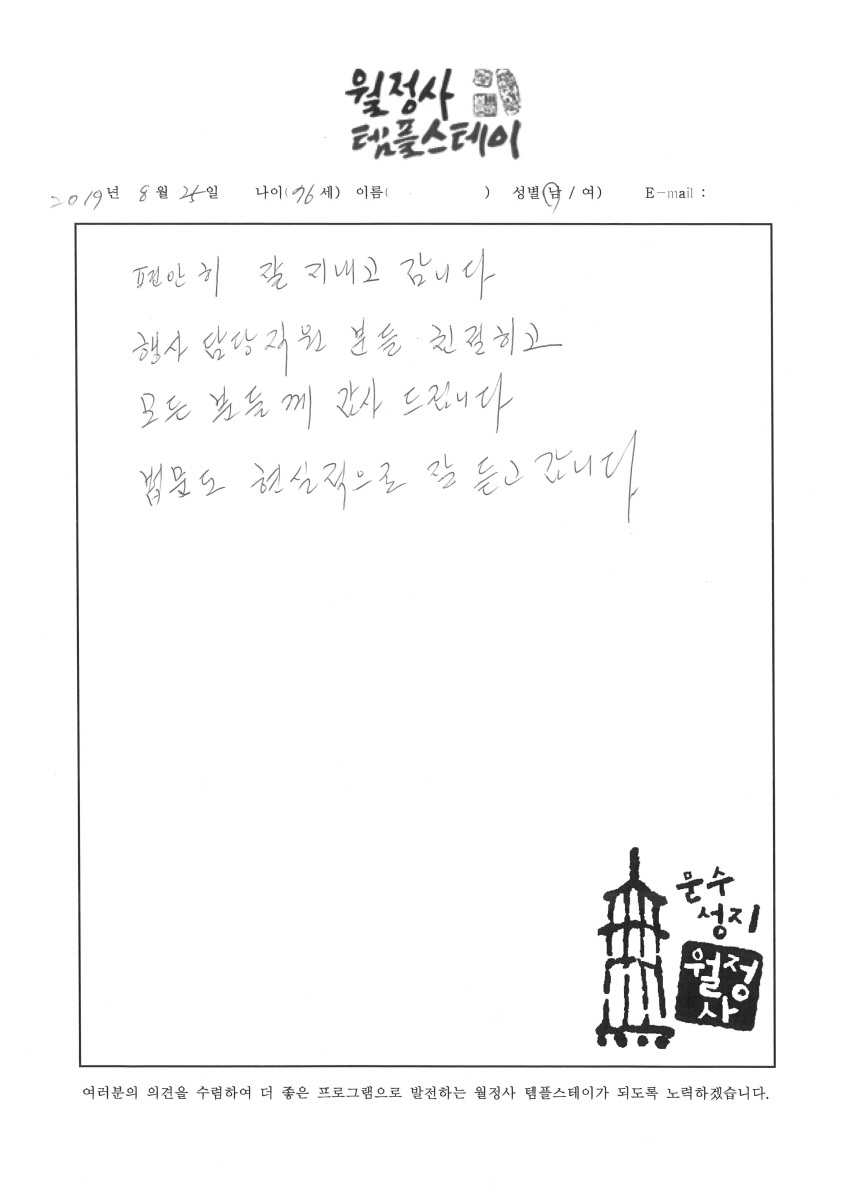 월정사
템플스테이
2019년 8월 25일 나이(76세) 이름( ) 성별(남 / 여) E-mail :
편안히 잘 지내고 갑니다
행사 담당직원 분들 친절하고
모든 분들께 감사 드립니다
법문도 현실적으로 잘 듣고 갑니다
문수
성지
월정
사
여러분의 의견을 수렴하여 더 좋은 프로그램으로 발전하는 월정사 템플스테이가 되도록 노력하겠습니다.